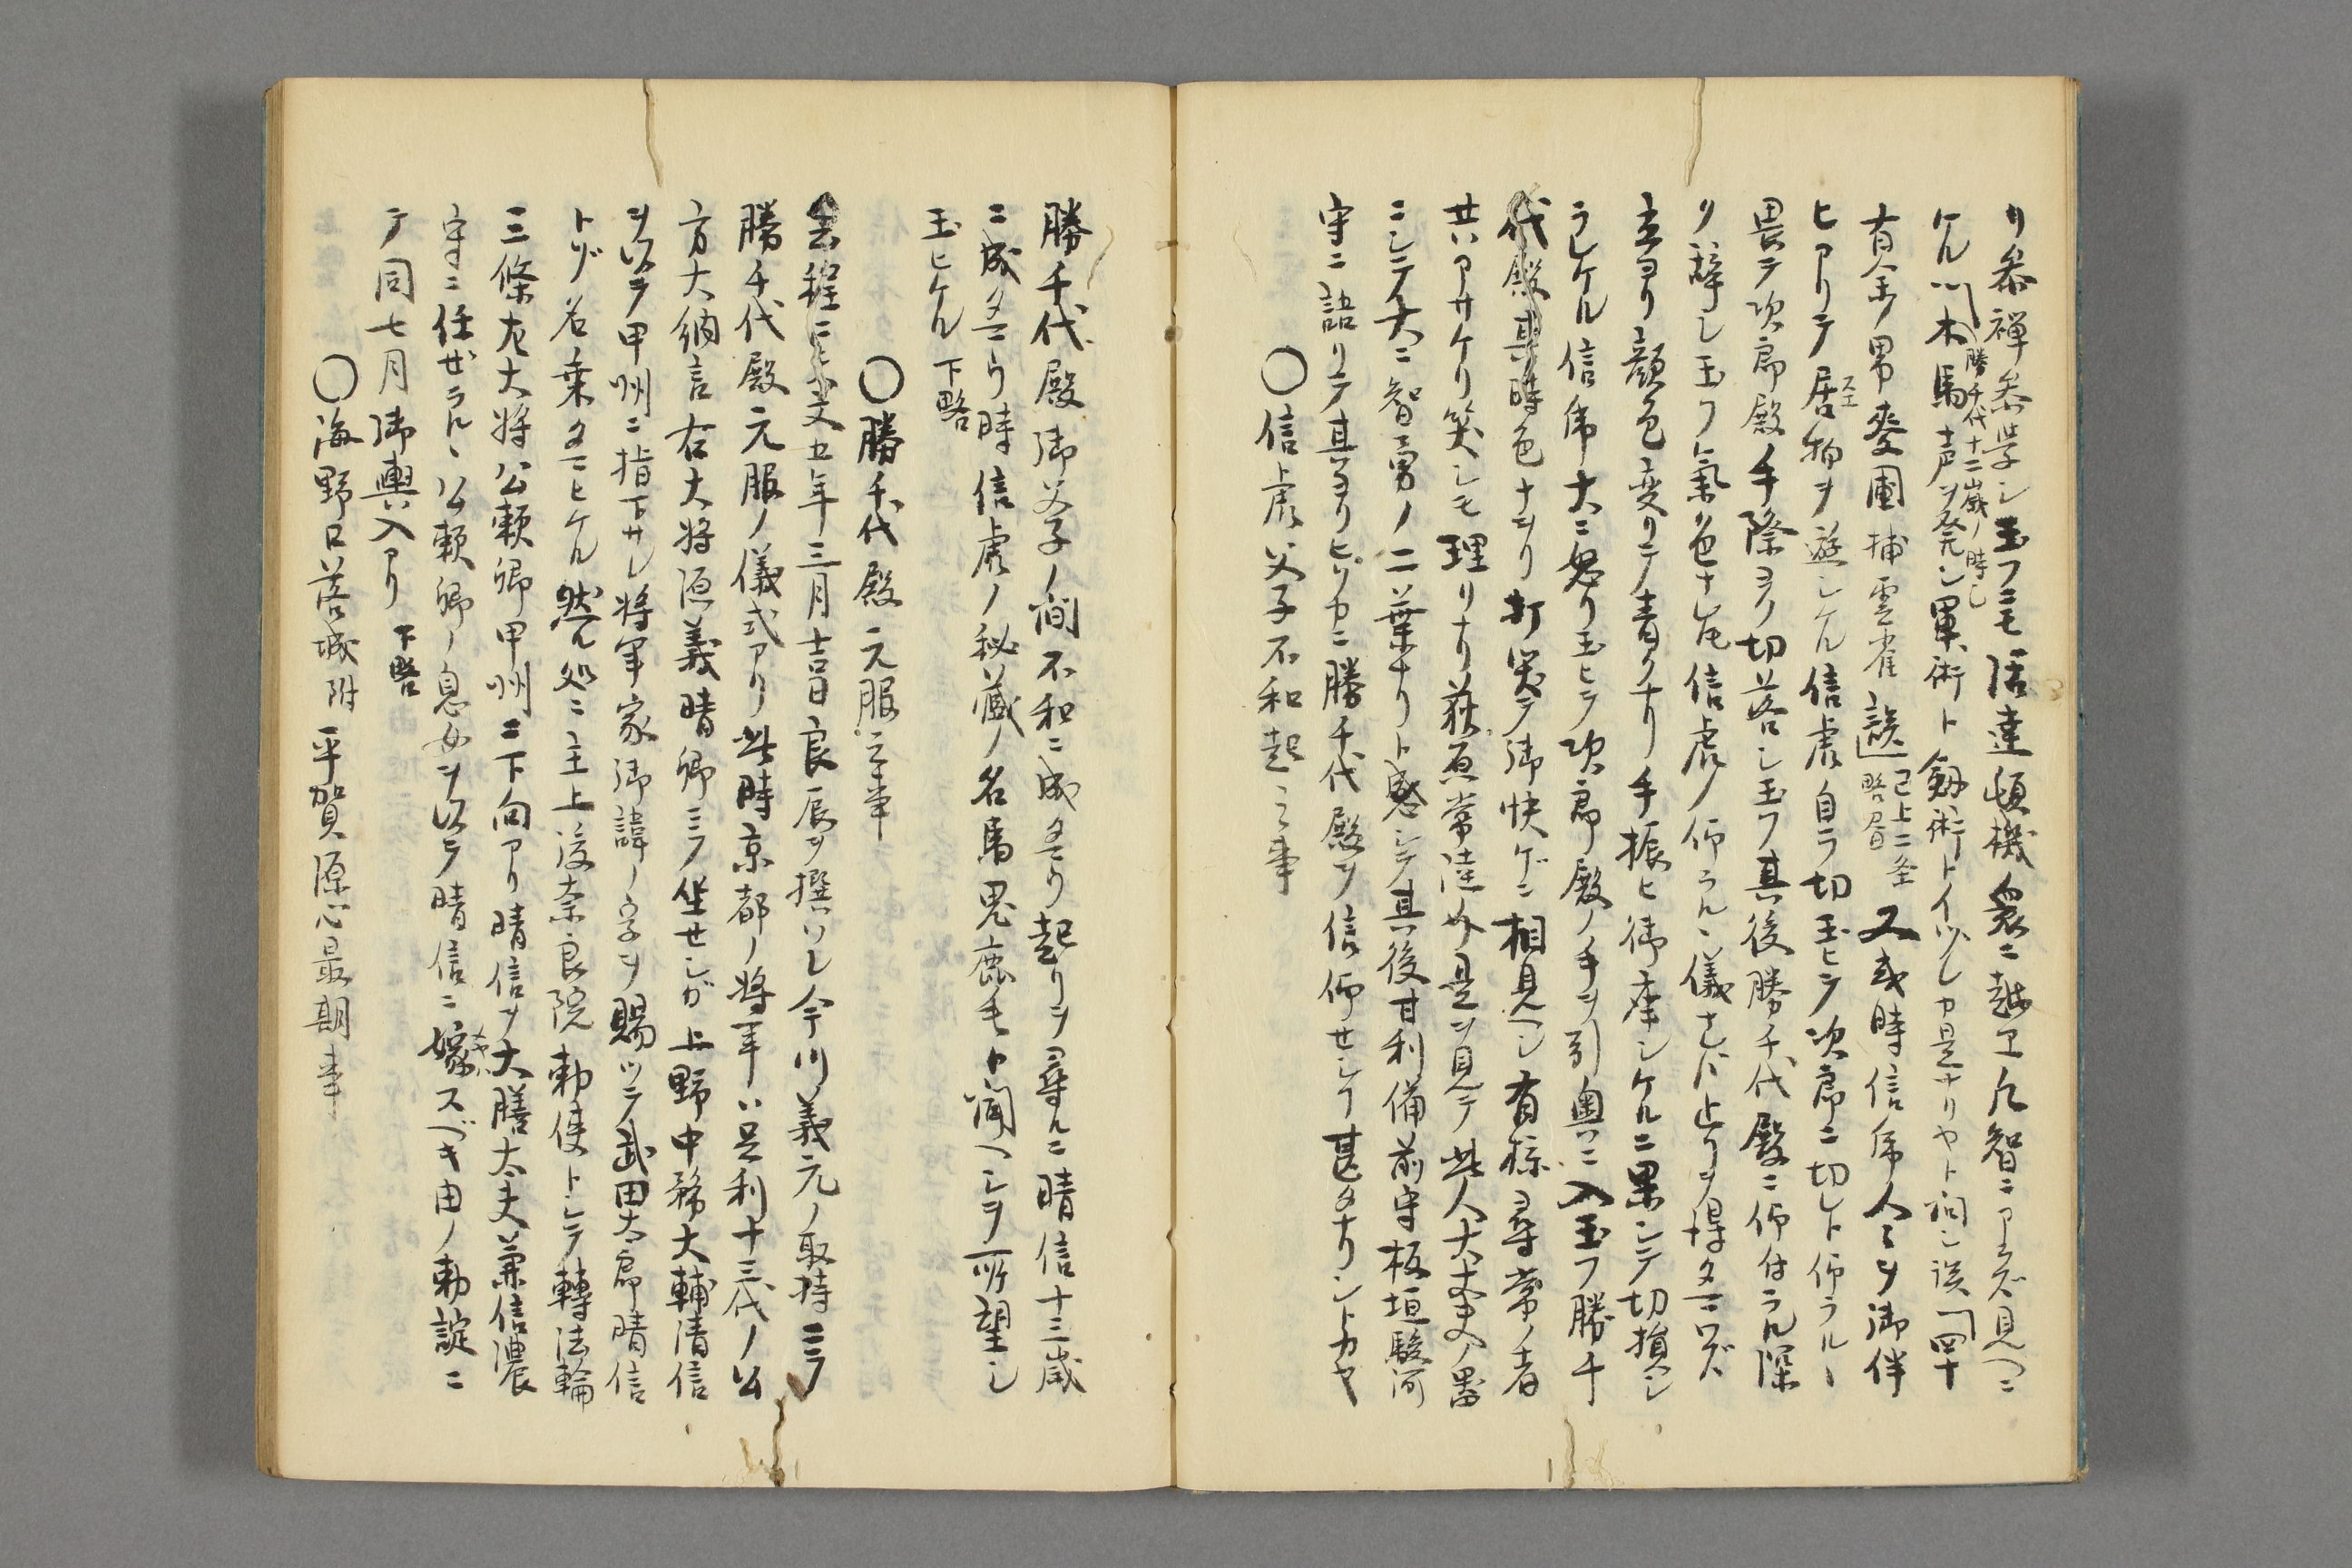 リ参禅参学シ玉フニモ活達頓機衆ニ越エ凡智ニアラズ見ヘニ
ケル木馬声ヲ発シ軍術ト剱術トイツレカ是ナリヤト詞シ談四十
勝千代十二歳ノ時
有余ノ男変圕捕雲雀談已上二条略音又或時信虎人々ヲ御伴
ヒアリテ居物ヲ遊シケル信虎自ラ切玉ヒテ次郎ニ切レト仰ラル丶
スエ
畏テ次郎殿手際ヨク切落シ玉フ其後勝千代殿ニ仰付ラル深
ク辞シ玉フ氣色ナレ𪜈信虎ノ仰ラル丶儀ナレバ止事ヲ得タマハズ
立ヨリ顔色変リテ青クナリ手振ヒ御座シケルニ果シテ切損シ
ラレケル信虎大ニ怒リ玉ヒテ次郎殿ノ手ヲ引奥ニ入玉フ勝千
代殿其時色ナヲリ打笑テ御快ゲニ相見ヘシ有様尋常ノ者
共ハアサケリ笑シモ理リナリ荻原常陸介是ヲ見テ此人大丈夫ノ器
ニシテ大ニ智勇ノ二葉ナリト感シテ其後甘利備前守板垣駿河
守ニ語リテ其ヨリヒソカニ勝千代殿ヲ信仰セシ事甚タナリシトカヤ
〇信虎父子不和起之事
勝千代殿御父子ノ間不和ニ成タマウ起リヲ尋ルニ晴信十三歳
ニ成タマウ時信虎ノ秘蔵ノ名馬鬼鹿毛ト聞ヘシヲ所望シ
玉ヒケル下略
〇勝千代殿元服之事
去程ニ天文五年三月吉日良辰ヲ撰ハレ今川義元ノ取持ニテ
勝千代殿元服ノ儀式アリ此時京都ノ将軍ハ足利十三代ノ公
方大納言右大将源義晴卿ニテ坐セシガ上野中務大輔清信
ヲ以テ甲州ニ指下サレ将軍家御諱ノ字ヲ賜ツテ武田太郎晴信
トゾ名乗タマヒケル然ル処ニ主上後奈良院勅使トシテ轉法輪
三條左大将公頼卿甲州ニ下向アリ晴信ヲ大膳大夫兼信濃
守ニ任ゼラル丶公頼卿ノ息女ヲ以テ晴信ニ嫁スベキ由ノ勅諚ニ
テ同七月御輿入アリ下略
〇海野口落城附平賀源心最期事